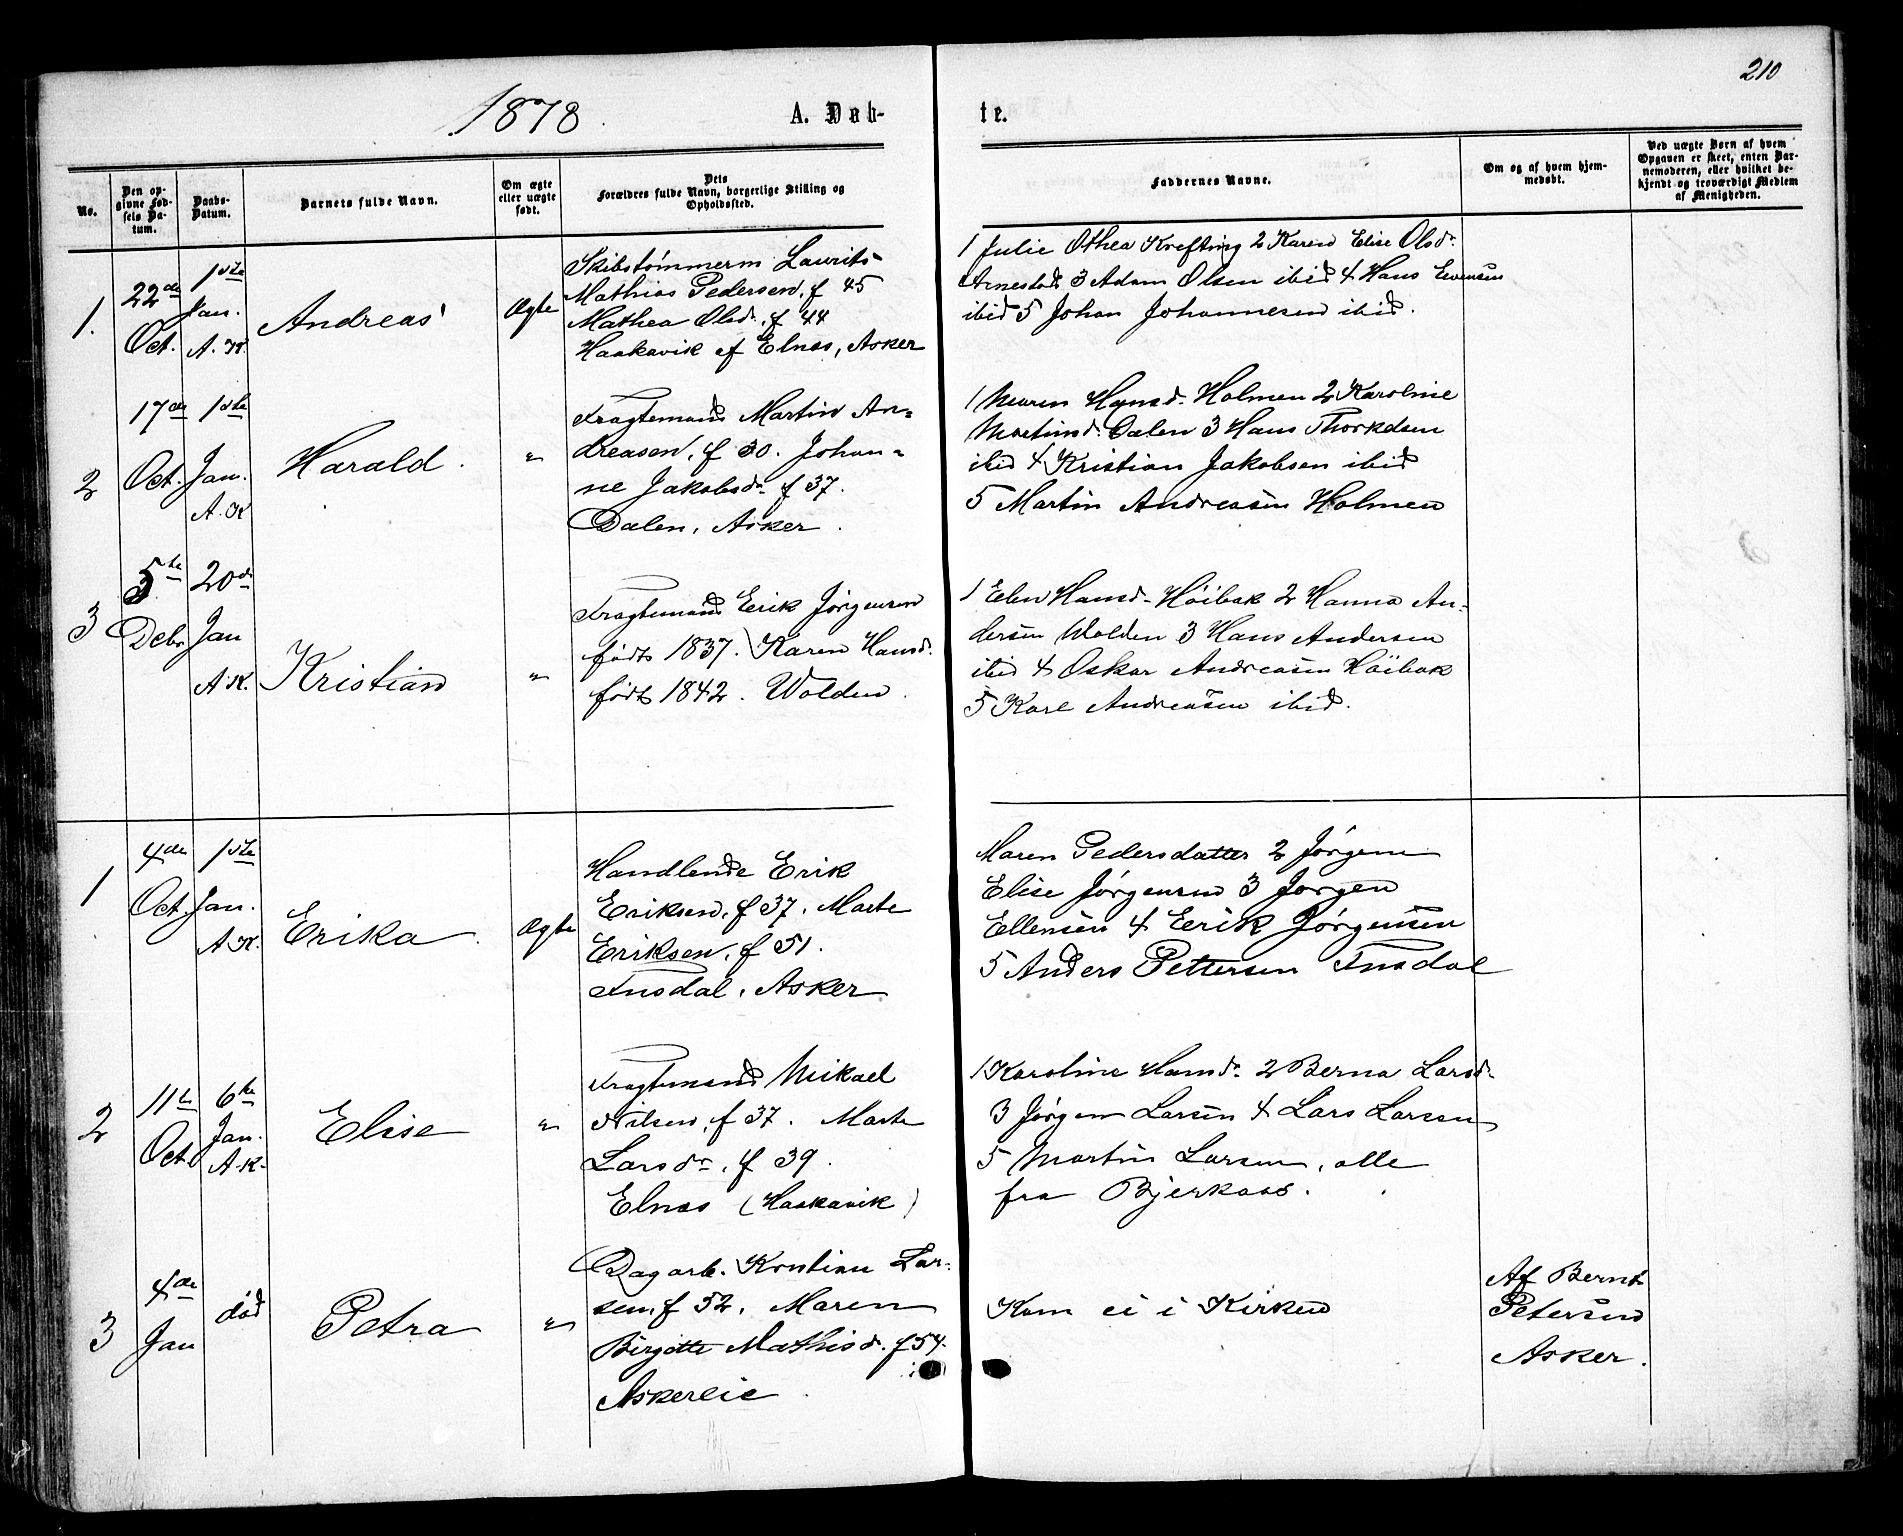 210
1878. A. Døb-
te.
No.
Den op-
givne Fød-
sels Da-
tum.
Daabs-
Datum.
Barnets fulde Navn.
Om ægte
eller uægte
født.
Dets
Forældres fulde Navn, borgerlige Stilling og
Opholdssted.
Faddernes Navne.
Om og af hvem hjem-
medøbt.
Ved uægte Børn af hvem
Opgaven er skeet, enten Bar-
nemoderen, eller hvilket be-
kjendt og troværdigt Medlem
af Menigheden.
1.
22de
Oct.
1ste
Jan.
A. K.
Andreas
Ægte
Skibstømmerm Laurits
Mathias Pedersen, f 45
Mathea Olsdr. f 44
Haakavik af Elnes, Asker
1 Julie Othea Krefting 2 Karen Elise Olsdr.
Arnestad 3 Adam Olsen ibid 4 Hans Evensen
ibid 5 Johan Johannesen ibid.
2
17de
Oct.
1ste
Jan.
A. K
Harald.
"
Fragtemand Martin An-
dreasen, f 30. Johan-
ne Jakobsdr f 37.
Dalen, Asker.
1 Maren Hansd. Holmen 2 Karoline
Martinsd. Dalen 3 Hans Thorkelsen
ibid 4 Kristian Jakobsen ibid
5 Martin Andreasen Holmen
3
5te
Debr
20de
Jan
A. K.
Kristian
"
Fragtemand Eerik Jørgensen
født 1837. Karen Hansd.
født 1842. Wolden.
1 Elen Hansd. Høibak 2 Hanna An-
dersen Wolden 3 Hans Andersen
ibid 4 Oskar Andreasen Høibak
5 Karl Andreasen ibid.
1
4de
Oct.
1ste
Jan.
A. K.
Erika.
Ægte
Handlende Erik
Eriksen, f 37. Marte
Eriksen, f 51.
Fusdal, Asker
Maren Pedersdatter 2 Jørgine
Elise Jørgensen 3 Jørgen
Ellensen 4 Eerik Jørgensen
5 Anders Pettersen Fusdal
2
11te
Oct
6te
Jan.
A. K.
Elise
"
Fragtemand Mikael
Nilsen, f 37. Marte
Larsdr, f 39.
Elnes (Haakavik)
1 Karoline Hansdr. 2 Berna Larsd.
3 Jørgen Larsen 4 Lars Larsen
5 Martin Larsen, alle
fra Bjerkaas.
3
4de
Jan
død
Petra
"
Dagarb. Kristian Lar-
sen, f 52. Maren
Birgitte Mathisd. f 54.
Askereie
Kom ei i Kirken
Af Bernt
Petersen
Asker.